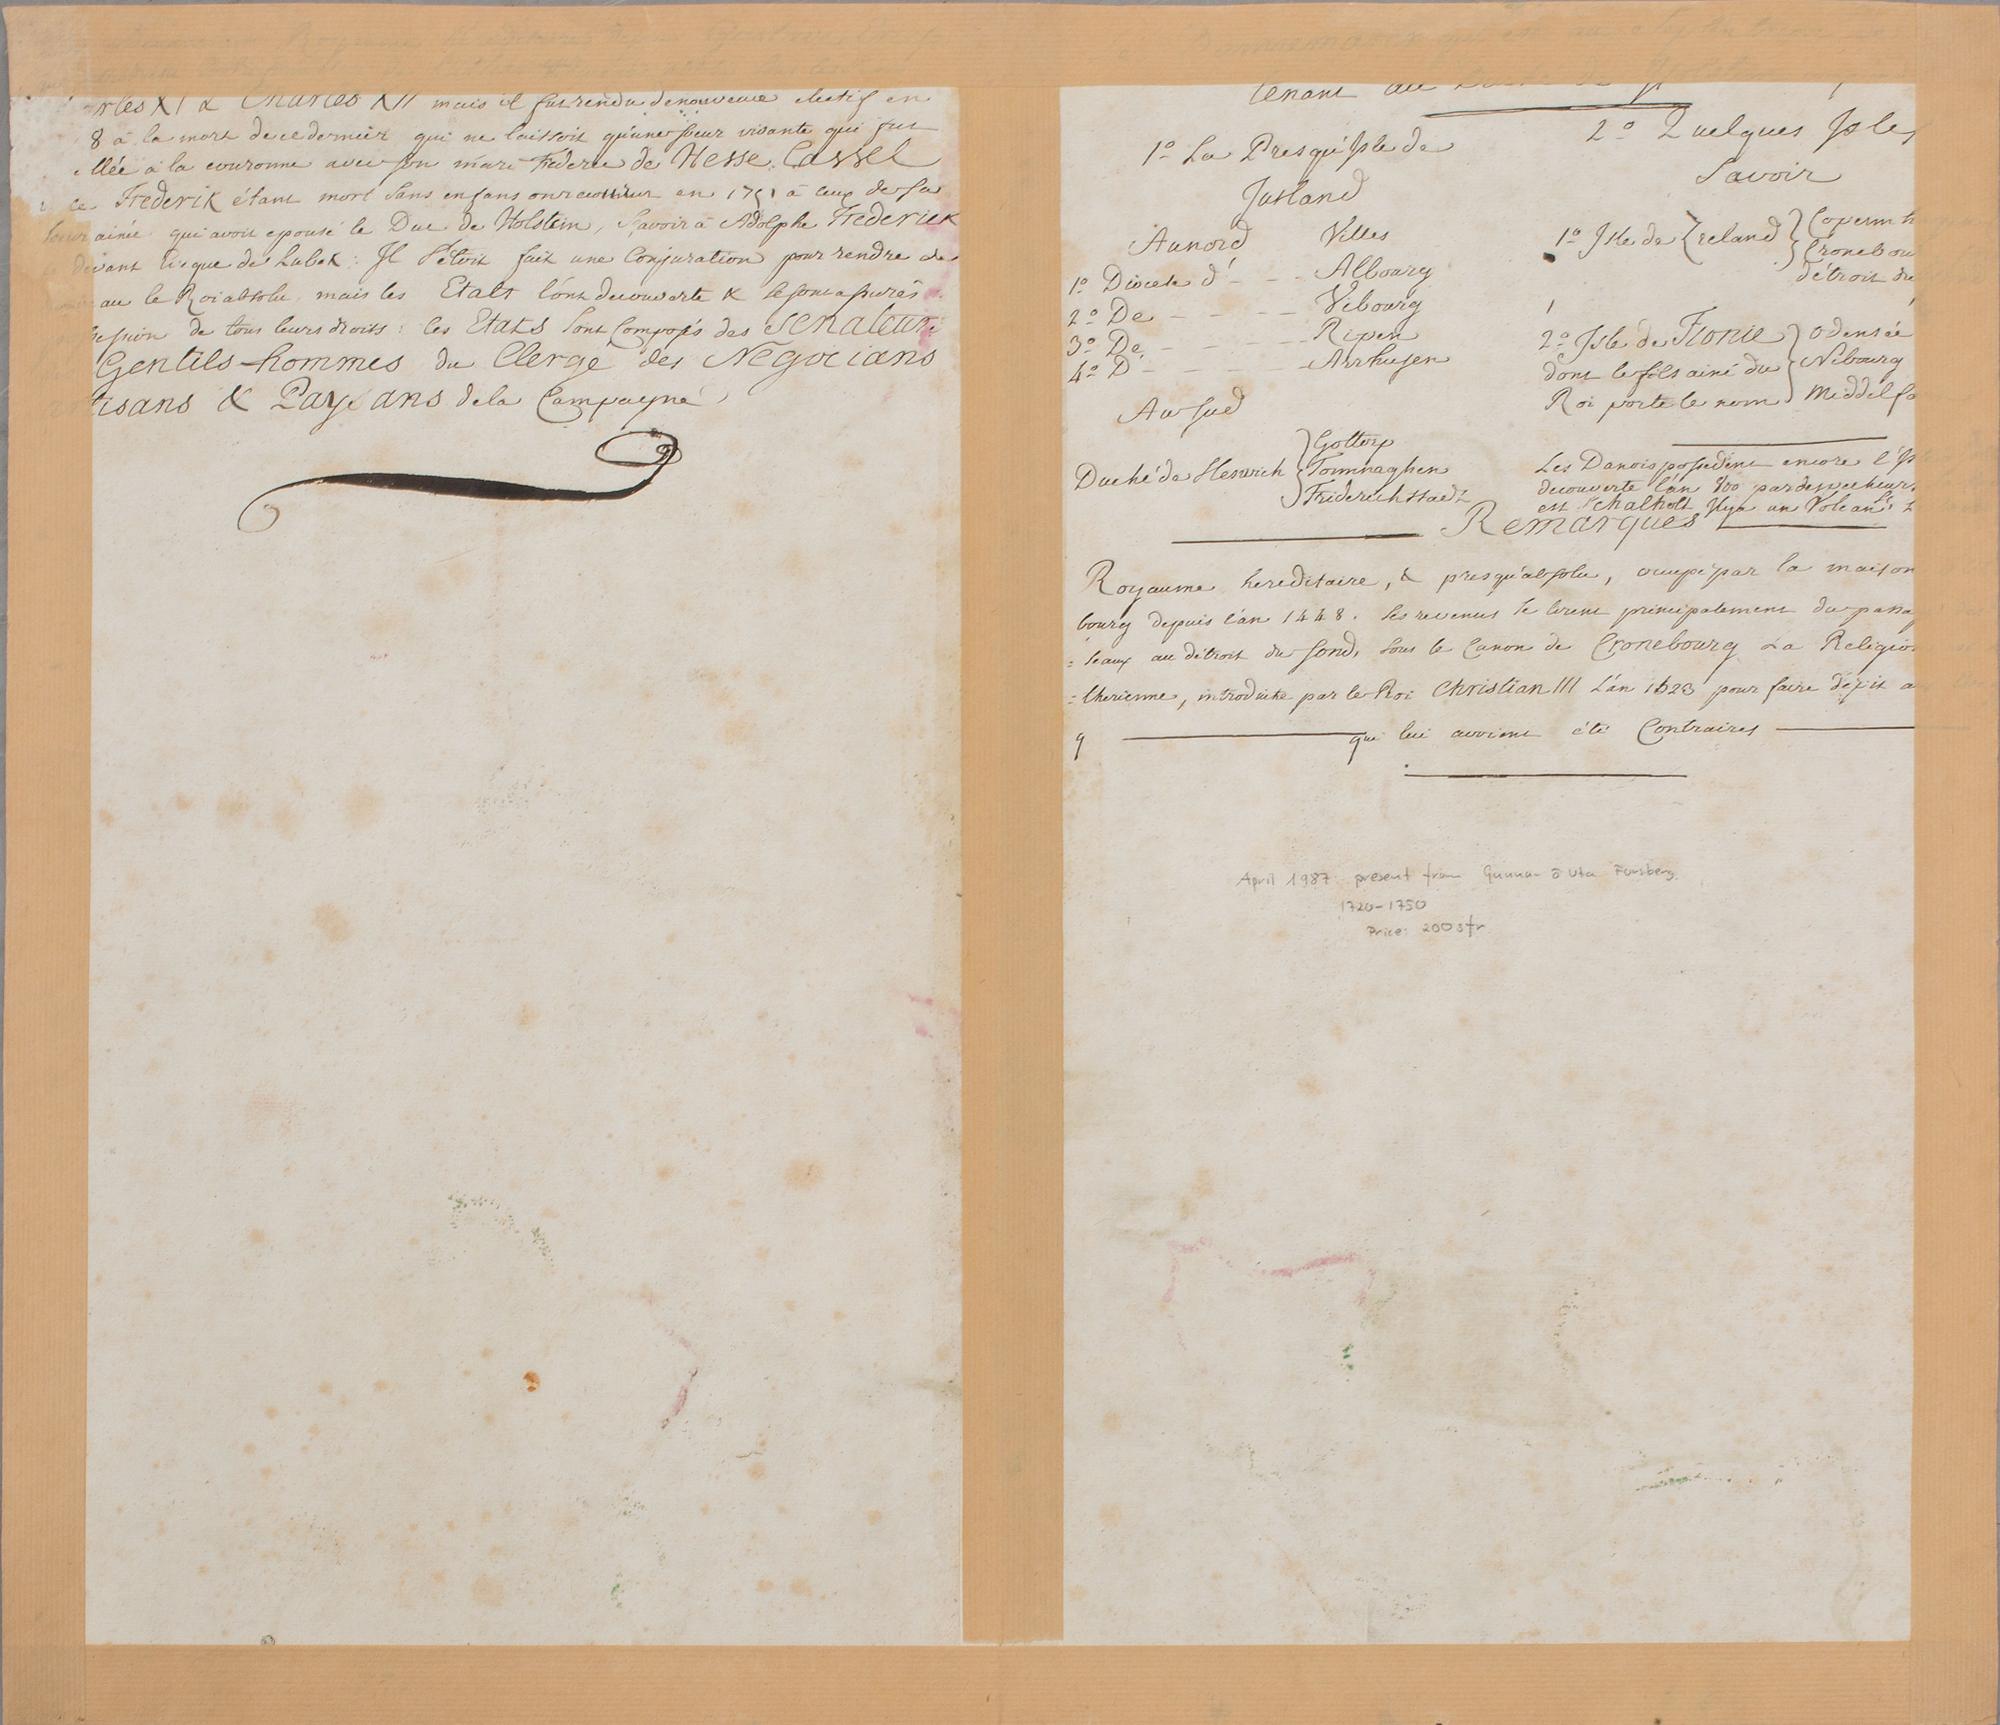 Charles XII mais il fut rendu denouveau electif en
8 à la mort de ce dernier qui ne laissoit qu'une soeur vivante qui fut
à la couronne avec son mari Frederic de Hesse Cassel
ce Frederik étant mort sans enfans en 1751 à ceux de sa
soeur ainée qui avoit epousé le Duc de Holstein, Savoir à Adolphe Frederick
devant Eveque de Lubek : Il s'étoit fait une Conjuration pour rendre de
au le Roi absolu, mais les Etats l'ont decouverte &
de tous leurs droits : les Etats sont Composés des Senateurs
Gentils-hommes du Clergé des Négocians
tisans & Payisans de la Campagne
tenant au
1º La Presqu'Isle de
Jutland
Au nord Villes
1º Diocese d' - - - Albourg
2º De - - - - Vibourg
3º De - - - - Ripen
4º D - - - - Arrhusen
Au Sud
Duché de Sleswich { Gottorp
Tonninghen
Friderichstadt
2º Quelques Isles
Savoir
1º Isle de Zeeland } Copenh
Cronebou
détroit du
2º Isle de Fionie } Odensée
dont le fils ainé du Nibourg
Roi porte le nom Middelfa
Les Danois possedent encore l'Is
decouverte l'an 860 par des pecheurs
est Schalholt Il y a un Volcan
Remarques
Royaume hereditaire, & presqu'absolu, occupé par la maison
bourg depuis l'an 1448. Ses revenus se tirent principalement du passa
= seaux au détroit du Sond, sous le Canon de Cronebourg La Religio
= therienne, introduite par le Roi Christian III L'an 1523 pour faire dépit a
q qui lui avoient été Contraires
April 1987 present from Gunnar o Uta Forsberg.
1720-1750
Price: 200 sfr